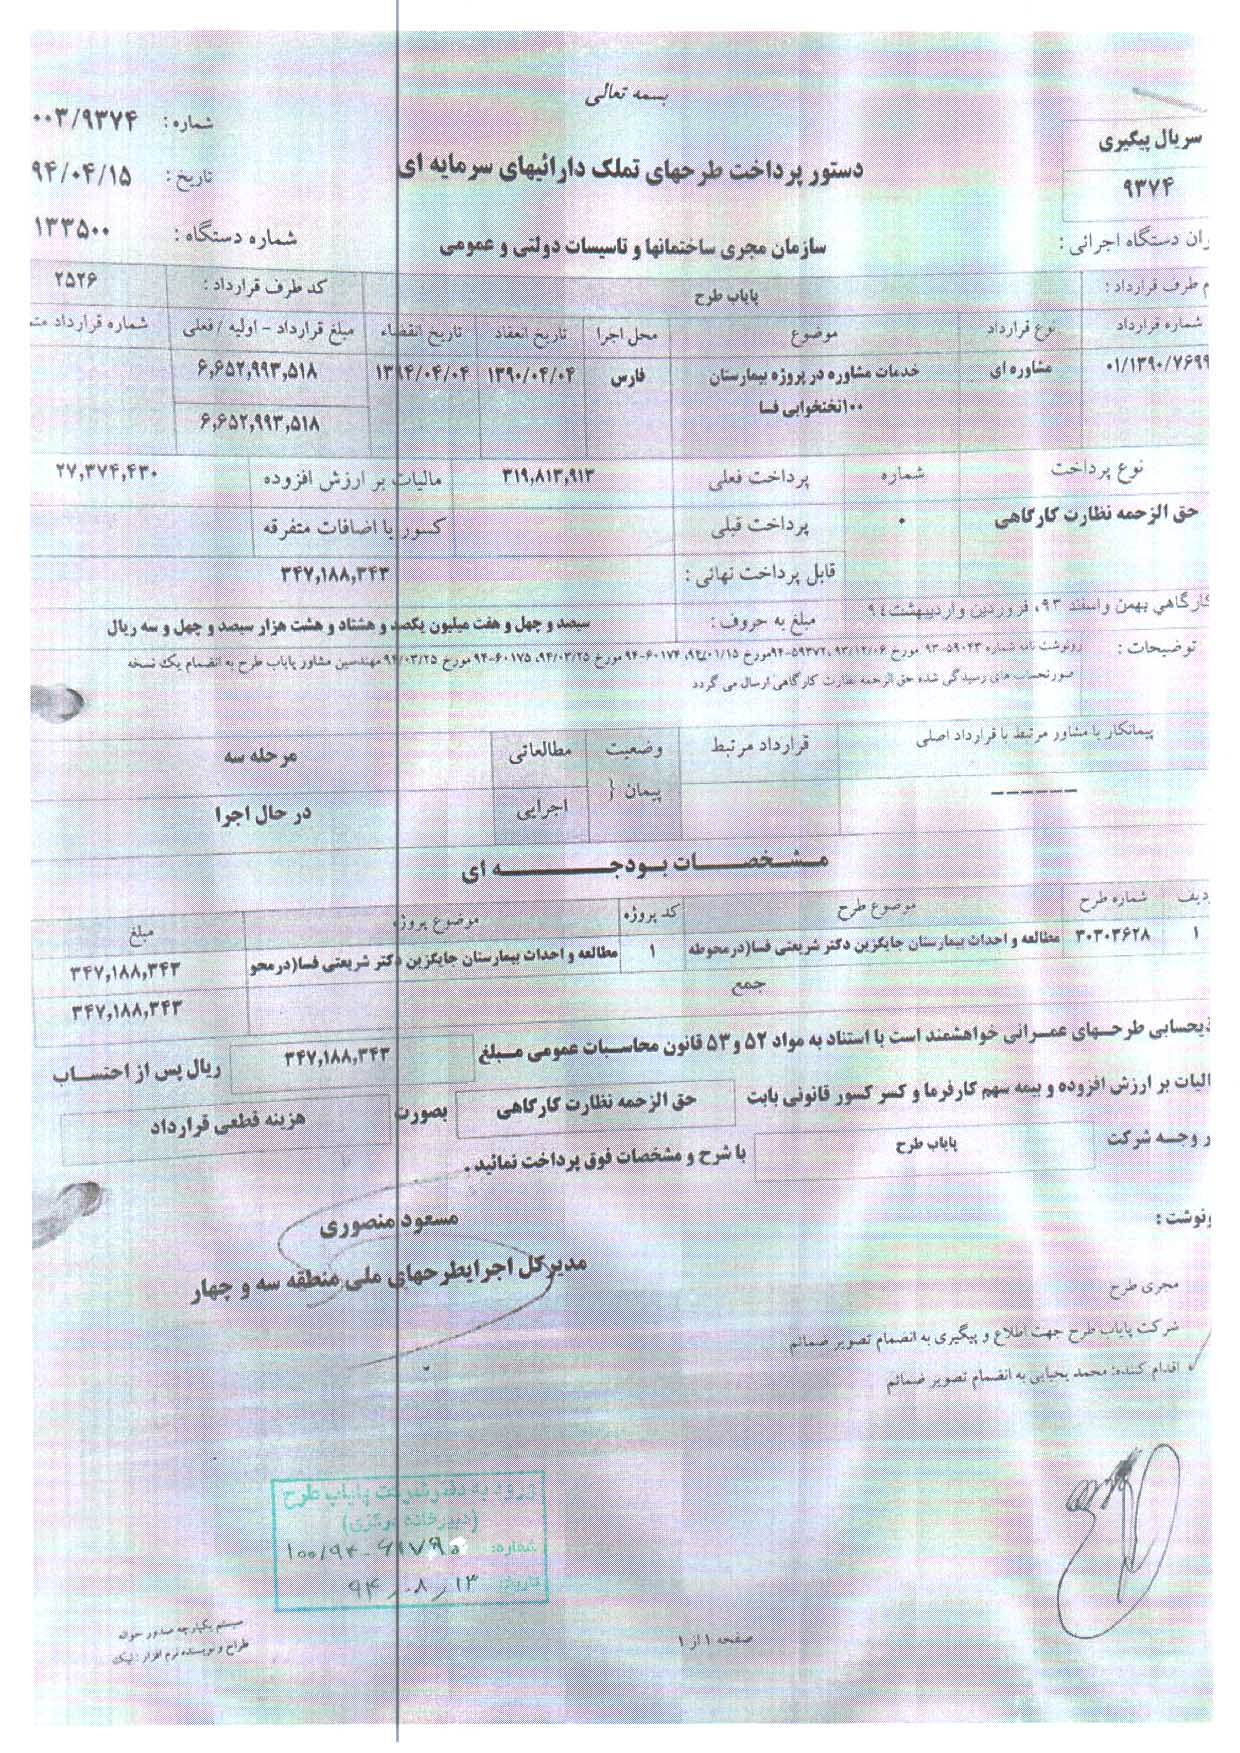 بسمه تعالی
سریال پیگیری
۹۳۷۴
شماره : ۰۰۳/۹۳۷۴
تاریخ : ۹۴/۰۴/۱۵
شماره دستگاه : ۱۳۳۵۰۰
دستور پرداخت طرحهای تملک دارائیهای سرمایه ای
سازمان مجری ساختمانها و تاسیسات دولتی و عمومی
دستگاه اجرائی :
طرف قرارداد : پایاب طرح کد طرف قرارداد : ۲۵۲۶
شماره قرارداد نوع قرارداد موضوع محل اجرا تاریخ انعقاد تاریخ انقضاء مبلغ قرارداد - اولیه / فعلی شماره قرارداد
۰۱/۱۳۹۰/۷۶۹۹ مشاوره ای خدمات مشاوره در پروژه بیمارستان فارس ۱۳۹۰/۰۴/۰۴ ۱۳۹۴/۰۴/۰۴ ۶,۶۵۲,۹۹۳,۵۱۸
۱۰۰تختخوابی فسا ۶,۶۵۲,۹۹۳,۵۱۸
نوع پرداخت شماره پرداخت فعلی ۳۱۹,۸۱۳,۹۱۳ مالیات بر ارزش افزوده ۲۷,۳۷۴,۴۳۰
حق الزحمه نظارت کارگاهی ۰ پرداخت قبلی کسور یا اضافات متفرقه
قابل پرداخت نهائی : ۳۴۷,۱۸۸,۳۴۳
کارگاهی بهمن واسفند ۹۳، فروردین و اردیبهشت۹۴ مبلغ به حروف : سیصد و چهل و هفت میلیون یکصد و هشتاد و هشت هزار سیصد و چهل و سه ریال
توضیحات : رونوشت نامه شماره ۵۹۰۴۳-۹۳ مورخ ۹۳/۱۲/۰۶ ،۵۹۳۷۲-۹۴مورخ ۹۴/۰۱/۱۵، ۶۰۱۷۴-۹۴ مورخ ۹۴/۰۳/۲۵، ۶۰۱۷۵-۹۴ مورخ ۹۴/۰۳/۲۵ مهندسین مشاور پایاب طرح به انضمام یک نسخه
صورتحساب های رسیدگی شده حق الزحمه نظارت کارگاهی ارسال می گردد
پیمانکار یا مشاور مرتبط با قرارداد اصلی قرارداد مرتبط وضعیت مطالعاتی مرحله سه
------ پیمان { اجرایی در حال اجرا
مشخصات بودجه ای
ردیف شماره طرح موضوع طرح کد پروژه موضوع پروژه مبلغ
۱ ۳۰۳۰۳۶۲۸ مطالعه و احداث بیمارستان جایگزین دکتر شریعتی فسا(در محوطه ۱ مطالعه و احداث بیمارستان جایگزین دکتر شریعتی فسا(در محو ۳۴۷,۱۸۸,۳۴۳
جمع ۳۴۷,۱۸۸,۳۴۳
ذیحسابی طرحهای عمرانی خواهشمند است با استناد به مواد ۵۲ و ۵۳ قانون محاسبات عمومی مبلغ ۳۴۷,۱۸۸,۳۴۳ ریال پس از احتساب
مالیات بر ارزش افزوده و بیمه سهم کارفرما و کسر کسور قانونی بابت حق الزحمه نظارت کارگاهی بصورت هزینه قطعی قرارداد
در وجه شرکت پایاب طرح با شرح و مشخصات فوق پرداخت نمائید .
مسعود منصوری
مدیرکل اجرایطرحهای ملی منطقه سه و چهار
رونوشت :
مجری طرح
شرکت پایاب طرح جهت اطلاع و پیگیری به انضمام تصویر ضمائم
اقدام کننده: محمد یحیایی به انضمام تصویر ضمائم
ورود به دفتر شرکت پایاب طرح
(دبیرخانه مرکزی)
شماره:
تاریخ: ۹۴/۰۸/۱۳
صفحه ۱ از ۱
سیستم یکپارچه صدور حواله
طراح و نویسنده نرم افزار :